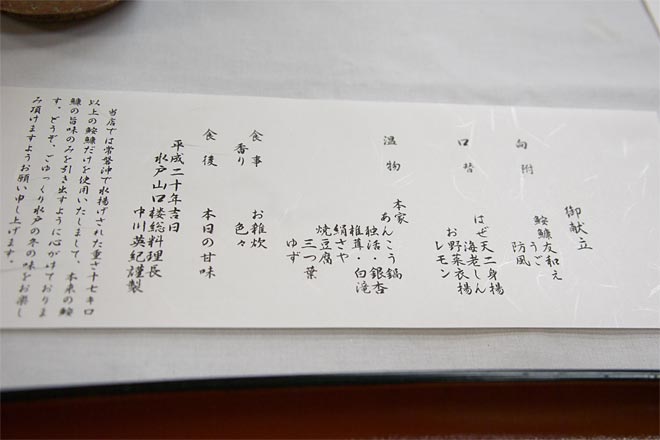 御献立
向附
鮟鱇友和え
うご
防風
口替
二身揚
はぜ天
海老しん
お野菜衣揚
レモン
温物
本家
あんこう鍋
独活・銀杏
椎茸・白滝
絹さや
焼豆腐
三つ葉
ゆず
食事
お雑炊
香り
色々
食後
本日の甘味
平成二十年吉日
水戸山口楼総料理長
中川英紀謹製
当店では常磐沖で水揚げされた重さ十七キロ
以上の鮟鱇だけを使用いたしまして、本来の鮟
鱇の旨味のみを引き出すように心がけておりま
す。どうぞ、ごゆっくり水戸の冬の味をお楽し
み頂けますようお願い申し上げます。